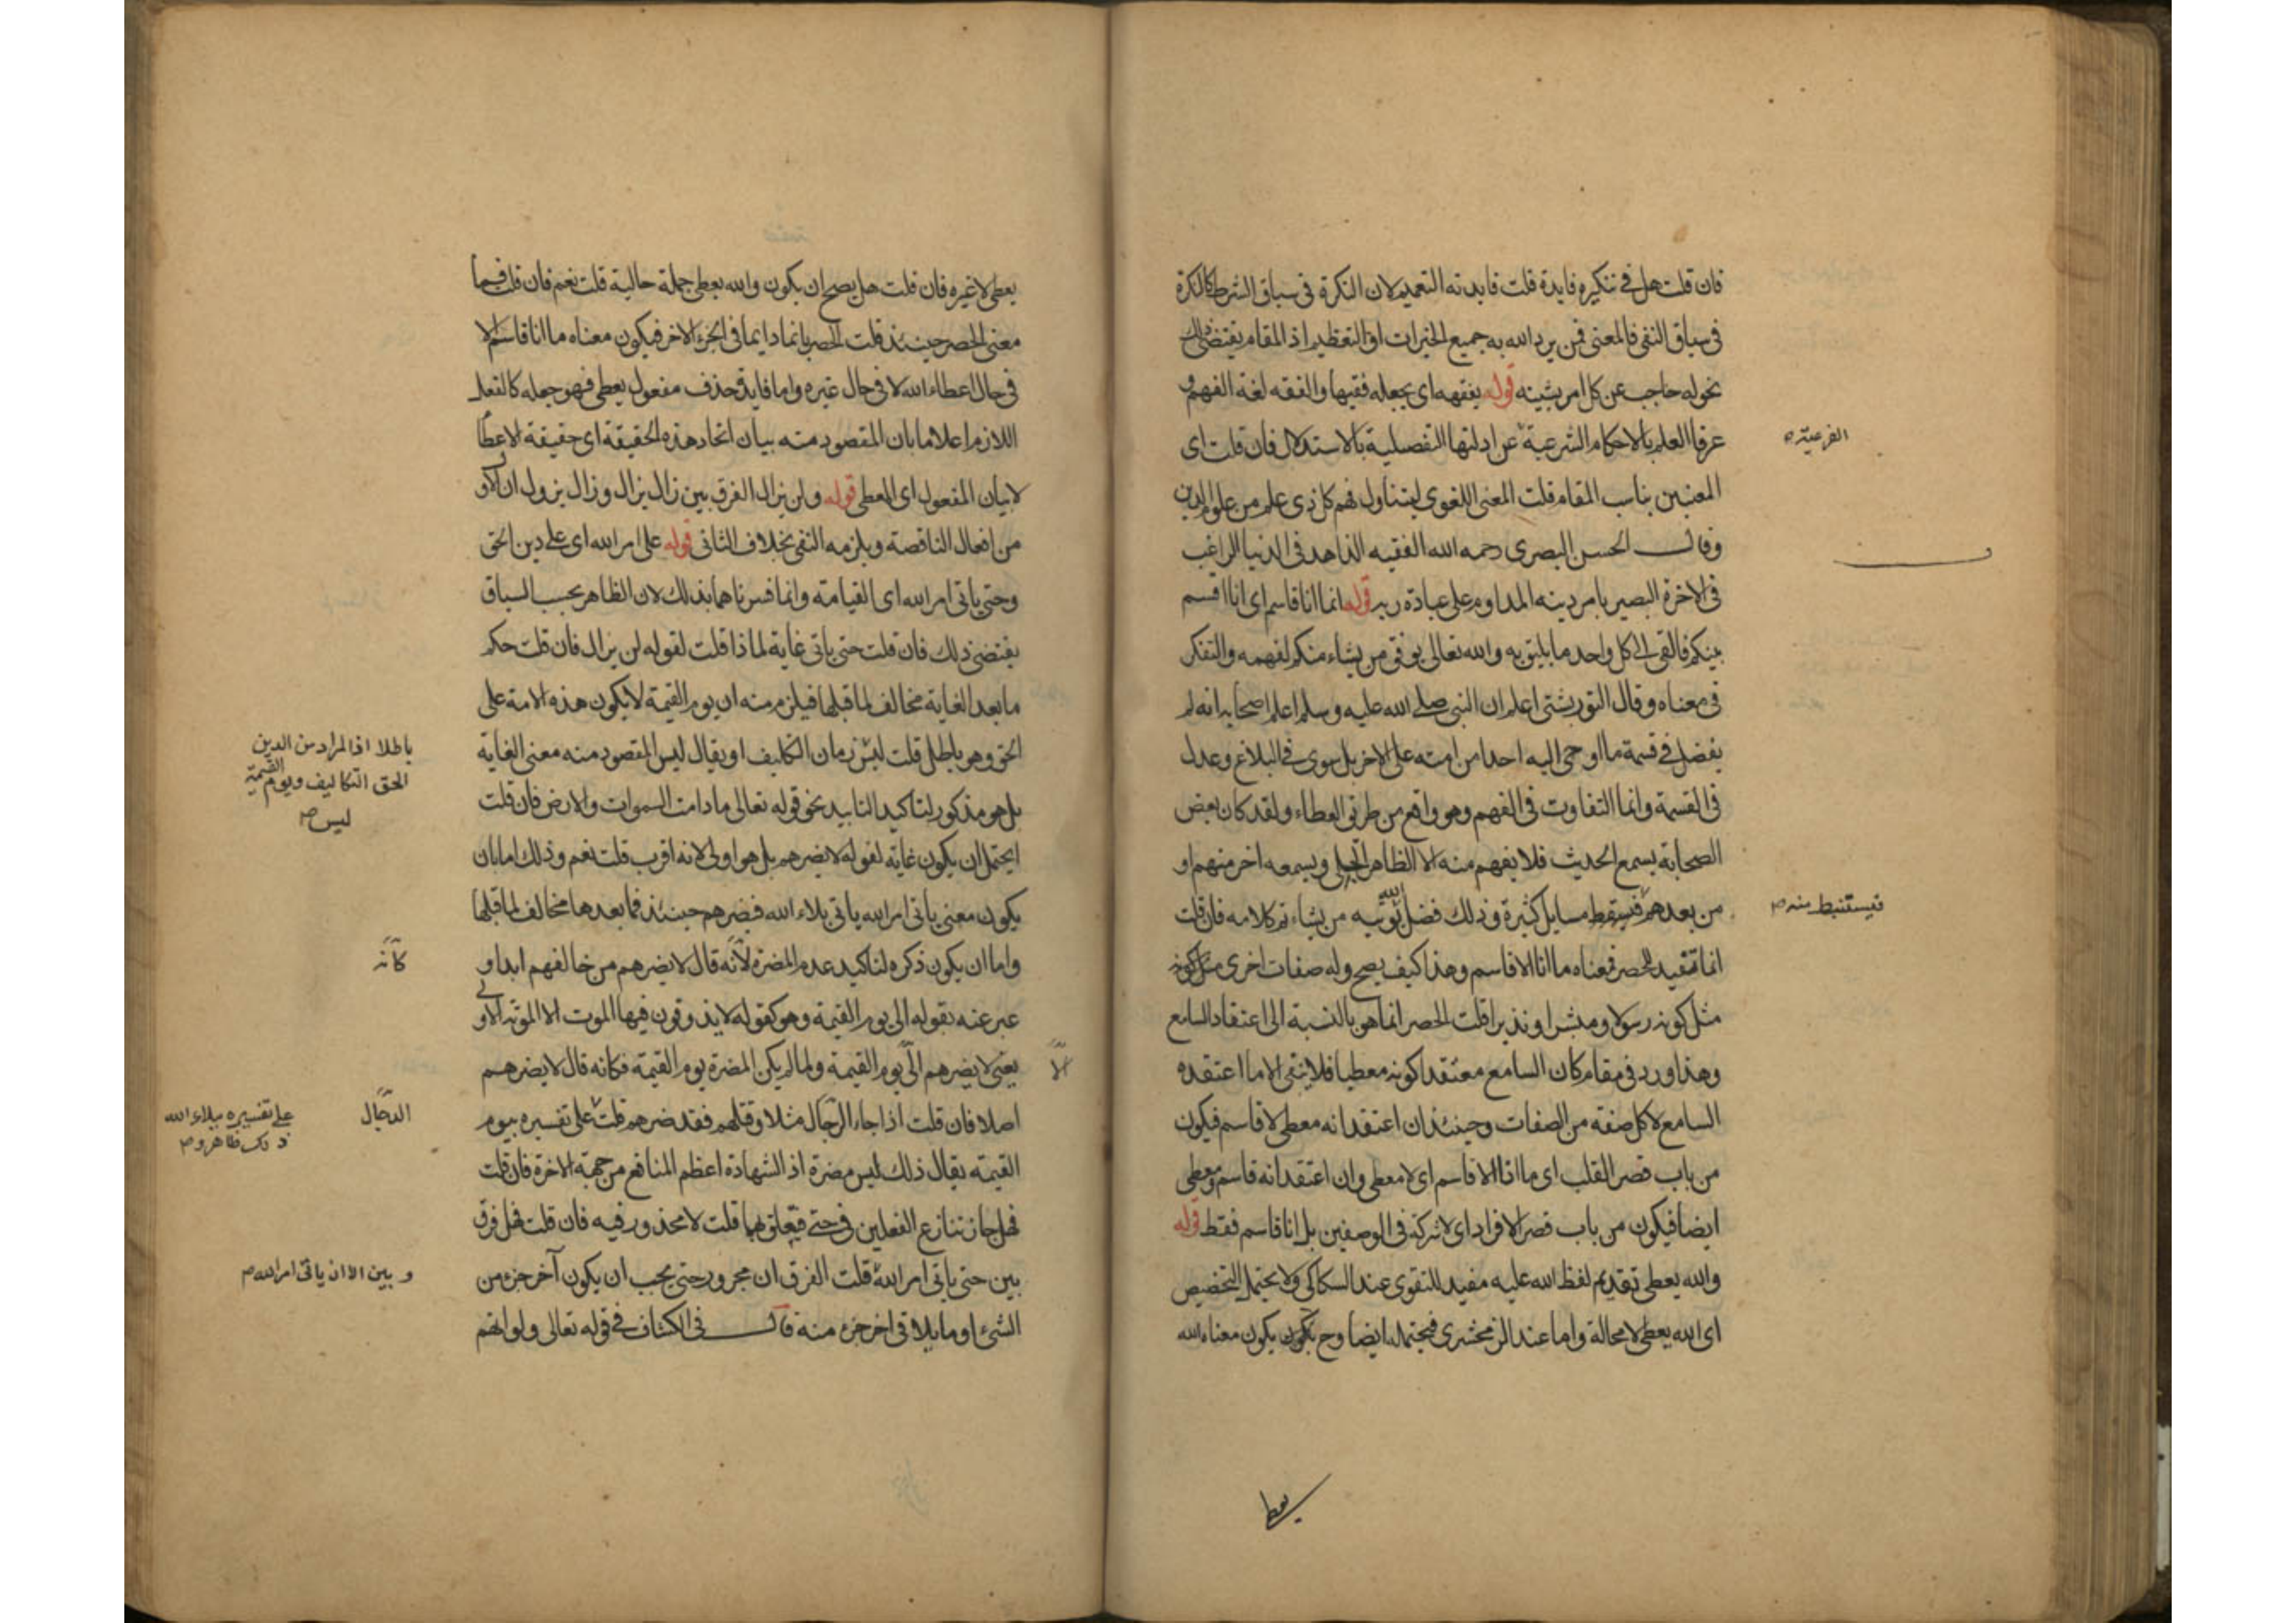 فان قلت هل في تنكيره فايدة قلت فايدته التعميم لان النكرة في سياق الشرط كالنكرة
في سياق النفي فالمعنى فمن يرد الله به جميع الخيرات او التعظيم اذ المقام يقتضي ذلك
نحو له حاجب عن كل امر يشينه قوله يفقهه اي يجعله فقيها والفقه لغة الفهم و
عرفا العلم بالاحكام الشرعية عن ادلتها التفصيلية بالاستدلال فان قلت اي
الفرعية ص
المعنيين يناسب المقام قلت المعنى اللغوي ليتناول فهم كل ذي علم من علوم الدين
وقال الحسن البصري رحمه الله الفقيه الزاهد في الدنيا الراغب
في الاخرة البصير بامر دينه المداوم على عبادة ربه قوله انما انا قاسم اي انا اقسم
بينكم فالقي الى كل واحد ما يليق به والله تعالى يوفق من يشاء منكم لفهمه والتفكر
في معناه وقال التوربشتي اعلم ان النبي صلى الله عليه وسلم اعلم اصحابه انه لم
يفضل في قسمة ما اوحى اليه احدا من امته على الاخر بل سوى في البلاغ وعدل
في القسمة وانما التفاوت في الفهم وهو واقع من طريق العطاء ولقد كان بعض
الصحابة يسمع الحديث فلا يفهم منه الا الظاهر الجلي ويسمعه اخر منهم او
من بعدهم مسايل كثيرة وذلك فضل الله يؤتيه من يشاء تم كلامه فان قلت
فيستنبط منه ص
انما تفيد الحصر فمعناه ما انا الا قاسم وهذا كيف يصح وله صفات اخرى مثل كونه
مثل كونه رسولا ومبشرا ونذيرا قلت الحصر انما هو بالنسبة الى اعتقاد السامع
وهذا ورد في مقام كان السامع معتقدا كونه معطيا فلا ينفي الا ما اعتقده
السامع لا كل صفة من الصفات وحينئذ ان اعتقد انه معطي لا قاسم فيكون
من باب قصر القلب اي ما انا الا قاسم اي لا معطي وان اعتقد انه قاسم ومعطي
ايضا فيكون من باب قصر الافراد اي لا شركة في الوصفين بل انا قاسم فقط قوله
والله يعطي تقديم لفظ الله عليه مفيد للتقوي عند السكاكي ولا يحتمل التخصيص
اي الله يعطي لا محالة واما عند الزمخشري فيحتمله ايضا وح يكون يكون معناه الله
يعطي
يعطي لا غيره فان قلت هل يصح ان يكون والله يعطي جملة حالية قلت نعم فان قلت فما
معنى الحصر حينئذ قلت الحصر بانما دايما في الجزء الاخر فيكون معناه ما انا قاسم الا
في حال اعطاء الله لا في حال غيره واما فايدة حذف مفعول يعطي فهو جعله كالفعل
اللازم اعلاما بان المقصود منه بيان اتحاد هذه الحقيقة اي حقيقة الاعطا
لا بيان المفعول اي المعطى قوله ولن يزال الفرق بين زال يزال وزال يزول ان الاول
من افعال الناقصة ويلزمه النفي بخلاف الثاني قوله على امر الله اي على دين الحق
وحتى ياتي امر الله اي القيامة وانما فسرناهما بذلك لان الظاهر بحسب السياق
يقتضي ذلك فان قلت حتى ياتي غاية لماذا قلت لقوله لن يزال فان قلت حكم
ما بعد الغاية مخالف لما قبلها فيلزم منه ان يوم القيمة لا يكون هذه الامة على
الحق وهو باطل قلت ليس زمان التكاليف او يقال ليس المقصود منه معنى الغاية
باطلا اذ المراد من الدين
الحق التكاليف ويوم القيمة
ليس ص
بل هو مذكور لتاكيد التابيد نحو قوله تعالى ما دامت السموات والارض فان قلت
ايحتمل ان يكون غاية لقوله لا يضرهم بل هو اولى لانه اقرب قلت نعم وذلك اما بان
يكون معنى ياتي امر الله ياتي بلاء الله فيضرهم حينئذ فما بعدها مخالف لما قبلها
واما ان يكون ذكره لتاكيد عدم المضرة لانه قال لا يضرهم من خالفهم ابدا و
كانه
عبر عنه بقوله الى يوم القيمة وهو كقوله لا يذوقون فيها الموت الا الموتة الاولى
يعني لا يضرهم الى يوم القيمة ولما لم يكن المضرة يوم القيمة فكانه قال لا يضرهم
الا
اصلا فان قلت اذا جاء الرجال مثلا وقتلهم فقد ضرهم قلت على تفسيره بيوم
الدجال
على تفسيره ببلاء الله
ذلك ظاهر و ص
القيمة يقال ذلك ليس مضرة اذ الشهادة اعظم المنافع من جهة الاخرة فان قلت
فهل جاز تنازع الفعلين في حتى فيتعلق بهما قلت لا محذور فيه فان قلت فهل فرق
بين حتى ياتي امر الله قلت الفرق ان مجرور حتى يجب ان يكون آخر جزء من
و بين الا ان ياتي امر الله ص
الشيء او ما يلاقي اخر جزء منه قال في الكشاف في قوله تعالى ولو انهم